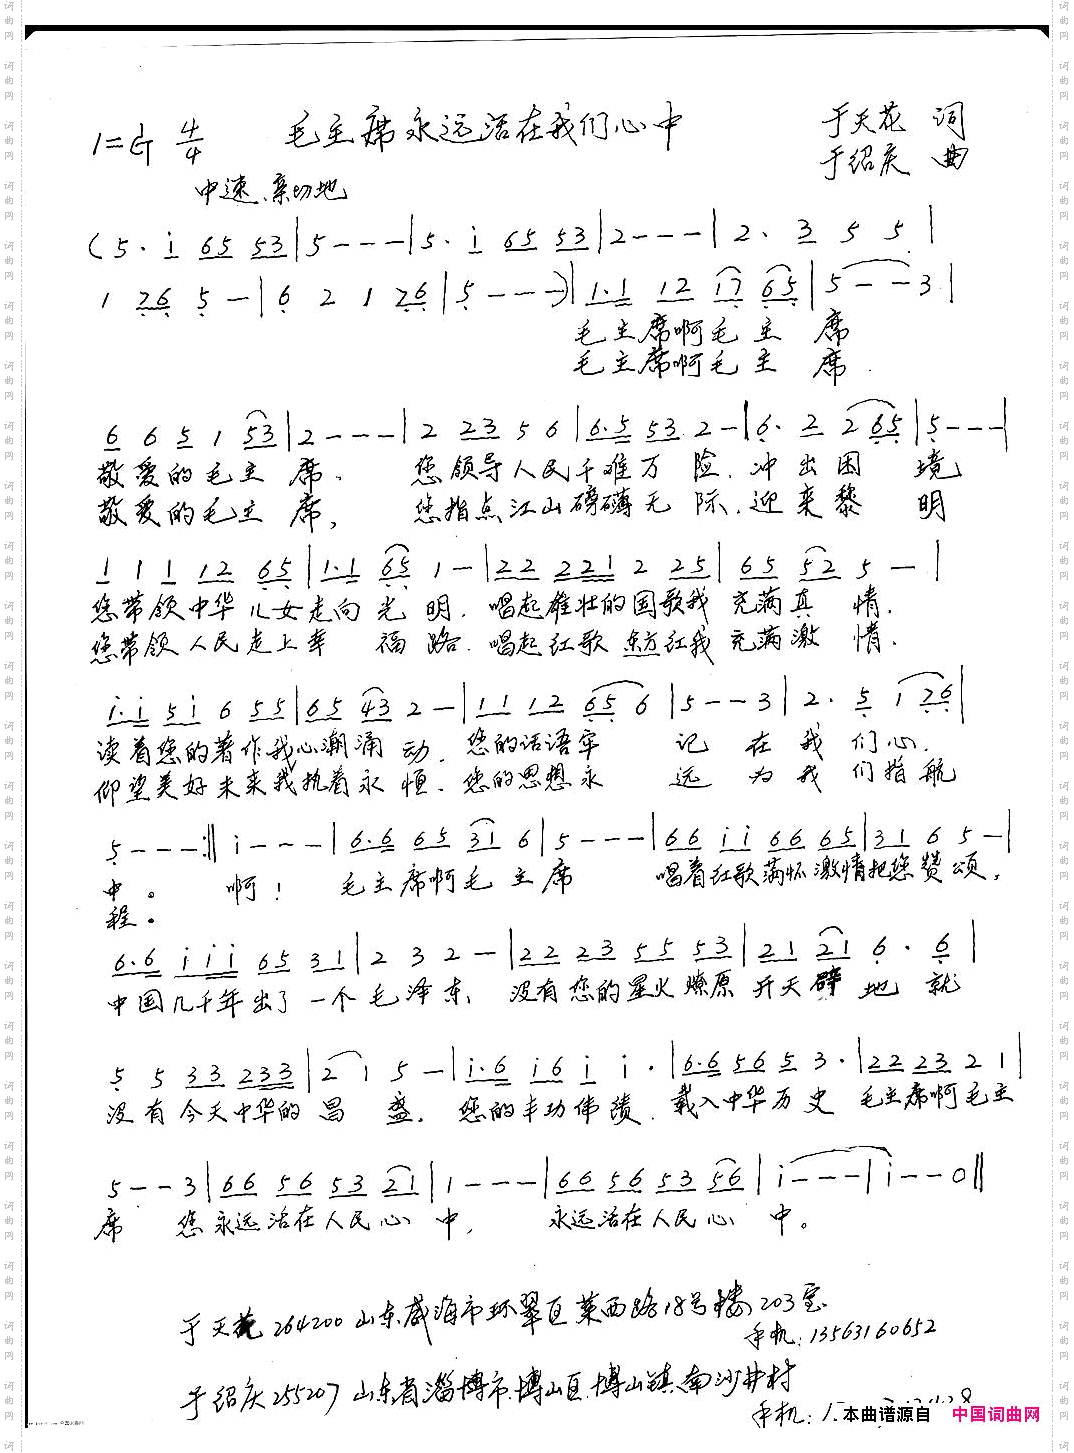 1=G 4/4 毛主席永远活在我们心中 于天花 词
中速、亲切地 于绍庆 曲
(5· i 65 53|5---|5· i 65 53|2---|2· 3 5 5|
1 26 5 -|6 2 1 26|5---)|1·1 12 17 65|5--3|
毛主席啊毛主席
毛主席啊毛主席
6 6 5 1 53|2---|2 23 5 6|6·5 53 2-|6· 2 2 65|5---|
敬爱的毛主席、 您领导人民千难万险、冲出困境
敬爱的毛主席, 您指点江山磅礴无际、迎来黎明
1 1 1 12 65|1·1 65 1-|22 221 2 25|65 52 5 -|
您带领中华儿女走向光明. 唱起雄壮的国歌我充满真情.
您带领人民走上幸福路. 唱起红歌东方红我充满激情.
i·i 5i 6 55|65 43 2-|11 12 65 6|5--3|2· 5 1 26|
读着您的著作我心潮涌动. 您的话语牢记在我们心.
仰望美好未来我执着永恒. 您的思想永远为我们指航
5---:‖ i---|6·6 65 31 6|5---|66 ii 66 65|31 6 5-|
中。 啊! 毛主席啊毛主席 唱着红歌满怀激情把您赞颂,
程。
6·6 iii 65 31|2 3 2 -|22 23 55 53|21 21 6· 6|
中国几千年出了一个毛泽东、 没有您的星火燎原开天辟地就
5 5 33 233|2 1 5 -|i·6 i6 i i·|6·6 56 5 3·|22 23 2 1|
没有今天中华的昌盛. 您的丰功伟绩. 载入中华历史 毛主席啊毛主
5--3|66 56 53 21|1---|66 56 53 56|i---|i--0‖
席 您永远活在人民心中, 永远活在人民心中。
于天花 264200 山东威海市环翠区菜西路18号楼203室
手机:13563160652
于绍庆 255207 山东省淄博市博山区博山镇南沙井村
手机:1
本曲谱源自 中国词曲网